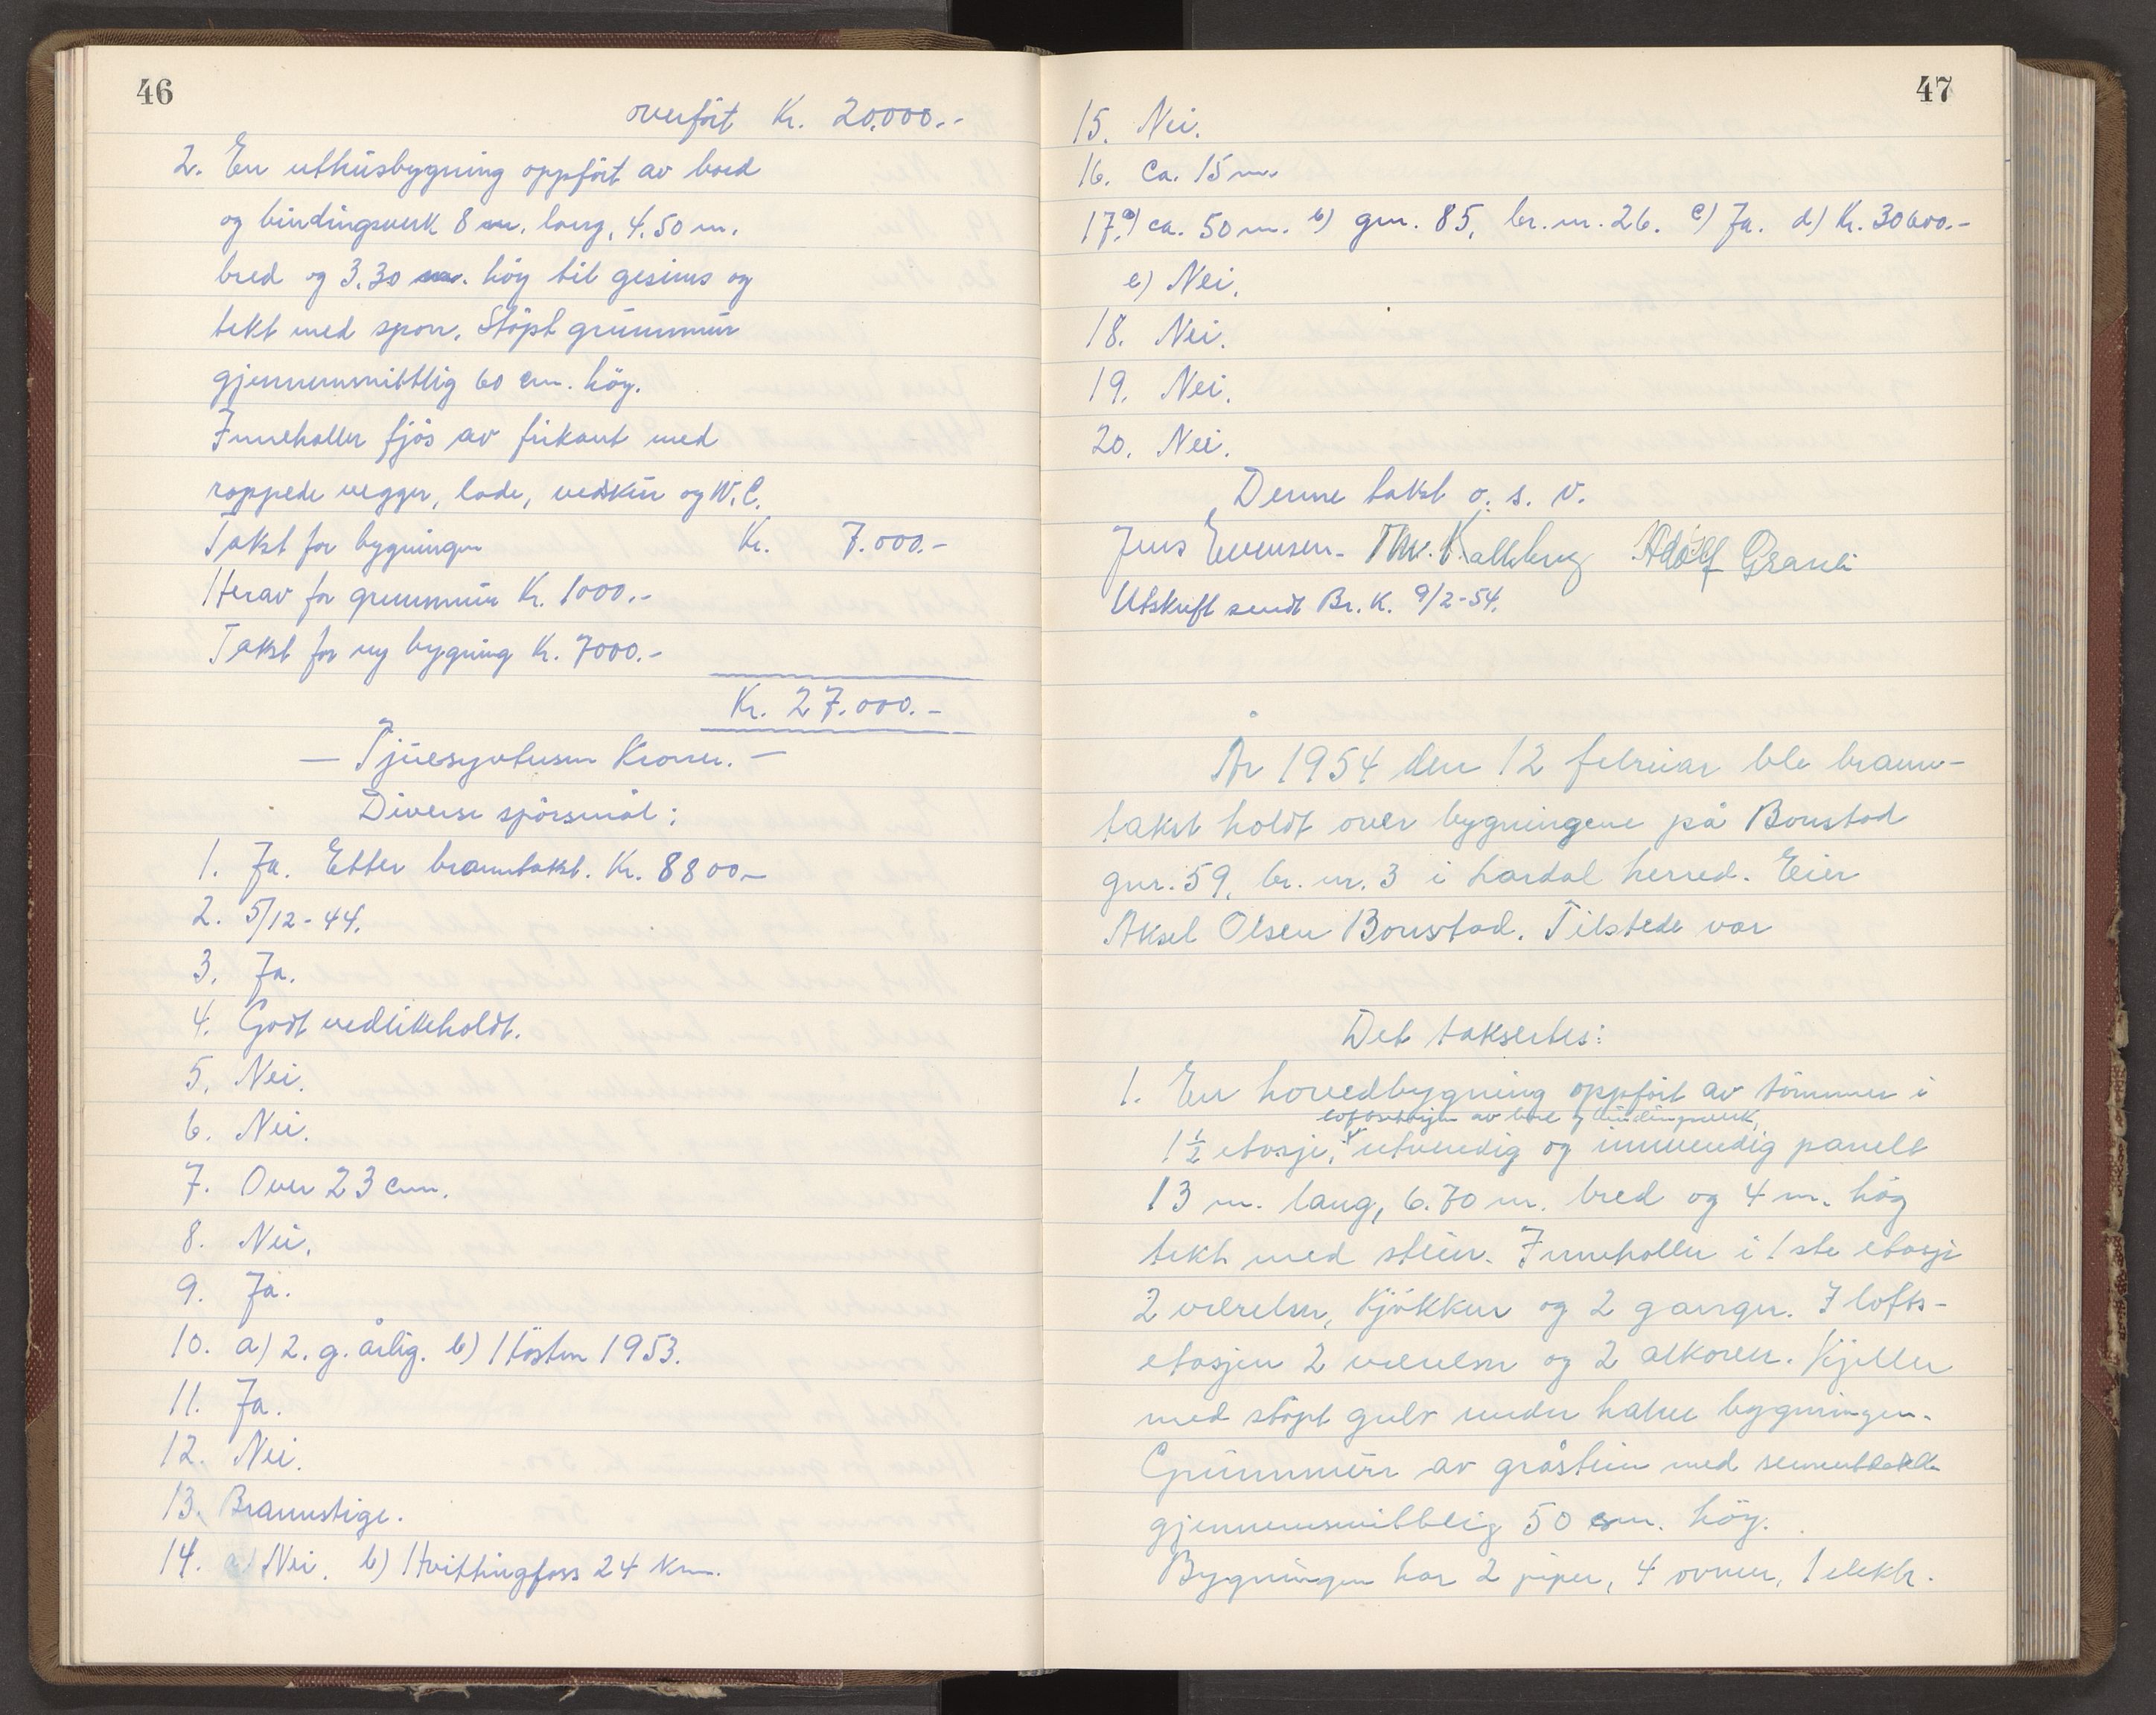 46
overført Kr. 20.000.-
2. En uthusbygning oppført av bord
og bindingsverk 8 m. lang, 4.50 m.
bred og 3.30 m. høy til gesims og
tekt med spon. Støpt grunnmur
gjennemsnittlig 60 cm. høy.
Inneholder fjøs av firkant med
rappede vegger, lade, vedskur og W.C.
Takst for bygningen Kr. 7.000.-
Herav for grunnmur Kr. 1000.-
Takst for ny bygning Kr. 7000.-
Kr. 27.000.-
— Tjuesyvtusen Kroner. —
Diverse spørsmål:
1. Ja. Etter branntakst. Kr. 8800-
2. 5/12-44.
3. Ja.
4. Godt vedlikeholdt.
5. Nei.
6. Nei.
7. Over 23 cm.
8. Nei.
9. Ja.
10. a) 2. g. årlig. b) Høsten 1953.
11. Ja.
12. Nei.
13. Brannstige.
14. a) Nei. b) Hvittingfoss 24 km.
47
15. Nei.
16. Ca. 15 m.
17. a) ca. 50 m. b) gnr. 85, br. nr. 26. c) Ja. d) Kr. 30600.-
e) Nei.
18. Nei.
19. Nei.
20. Nei.
Denne takst o. s. v.
Jens Evensen. Thv. Kallberg Adolf Granli
Utskrift sendt Br. K. 9/2-54.
År 1954 den 12 februar ble brann-
takst holdt over bygningene på Bonstad
gnr. 59, br. nr. 3 i Lardal herred. Eier
Aksel Olsen Bonstad. Tilstede var
Det takseres:
1. En hovedbygning oppført av tømmer i
loftsetasjen av bord og bindingsverk,
1½ etasje, utvendig og innvendig panelt
13 m. lang, 6.70 m. bred og 4 m. høg
tekt med stein. Inneholder i 1ste etasje
2 værelser, kjøkken og 2 ganger. I lofts-
etasjen 2 værelser og 2 alkover. Kjeller
med støpt gulv under halve bygningen.
Grunnmur av gråstein med sement
gjennemsnittlig 50 cm. høy.
Bygningen har 2 piper, 4 ovner, 1 elektr.